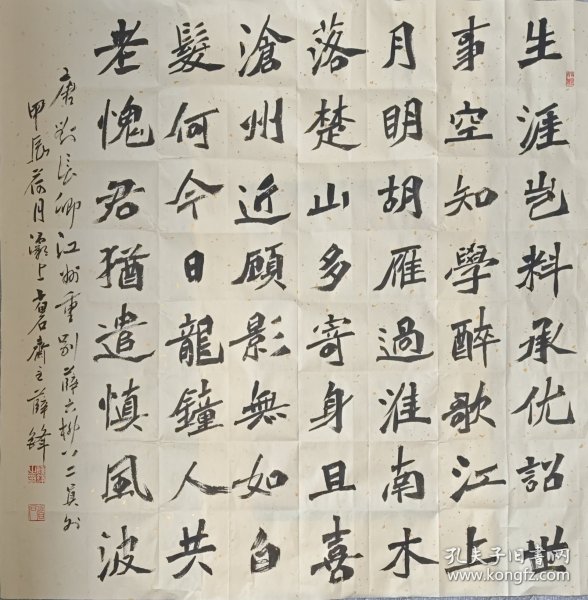 生涯岂料承优詔世
事空知學醉歌江上
月明胡雁過淮南木
落楚山多寄身且喜
滄州近顧影無如白
髮何今日龍鐘人共
老愧君猶遣慎風波
唐劉長卿江州重别薛六柳八二員外
甲辰荷月灞上
主薛鋒
孔夫子旧书网
www.kongfz.com